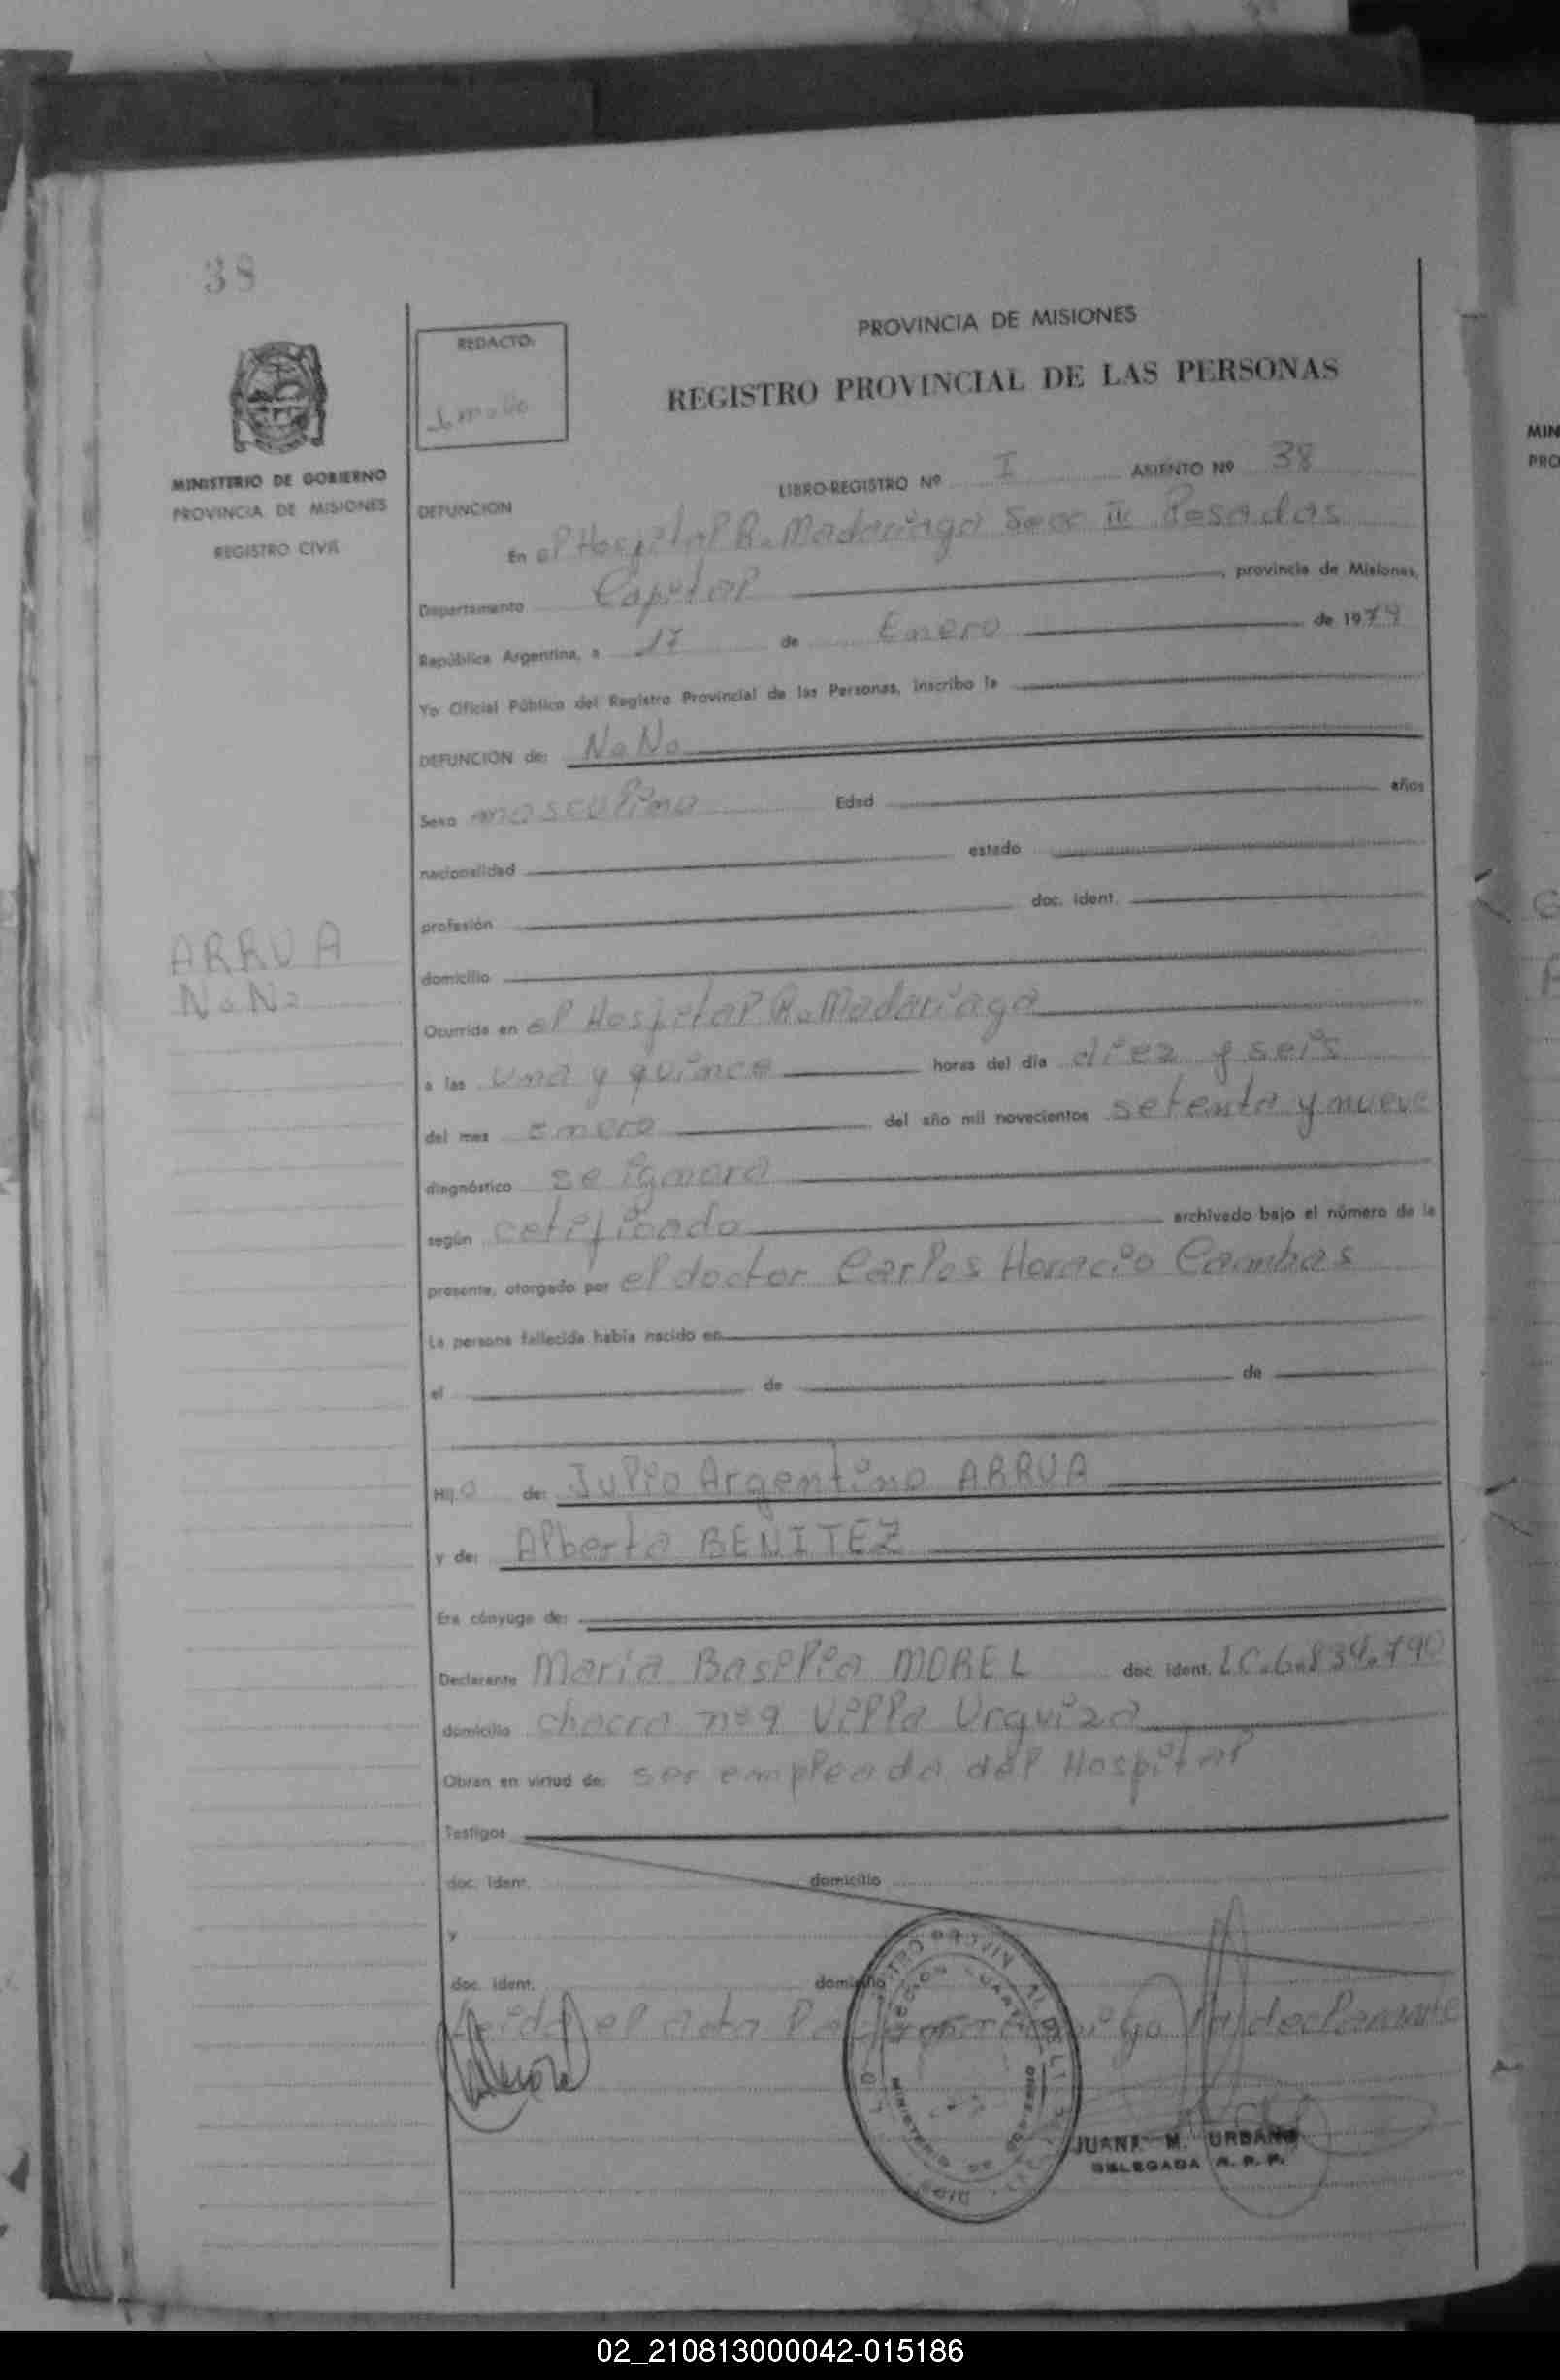 38
PROVINCIA DE MISIONES
REDACTO:
REGISTRO PROVINCIAL DE LAS PERSONAS
MINISTERIO DE GOBIERNO
PROVINCIA DE MISIONES
REGISTRO CIVIL
LIBRO-REGISTRO Nº I ASIENTO Nº 38
DEFUNCION
En el Hospital R. Madariaga Secc Posadas
Departamento Capital, provincia de Misiones,
República Argentina, a 17 de Enero de 1979
Yo Oficial Público del Registro Provincial de las Personas, inscribo la
DEFUNCION de: No No
Sexo masculino Edad años
nacionalidad estado
profesión doc. ident.
ARRUA
No No
domicilio
Ocurrida en el Hospital R. Madariaga
a las una y quince horas del día diez y seis
del mes Enero del año mil novecientos setenta y nueve
diagnóstico se ignora
según cetificado archivado bajo el número de la
presente, otorgado por el doctor Carlos Horacio Cambas
La persona fallecida había nacido en
el de de
Hij o de: Julio Argentino ARRUA
y de: Alberta BENITEZ
Era cónyuge de:
Declarante Maria Basilia MOREL doc. ident. LC.6.834.790
domicilio chacra nº9 Villa Urquiza
Obran en virtud de: ser empleada del Hospital
Testigos
doc. ident. domicilio
y
doc. ident. domicilio
Leida el acta la conmigo la declarante
JUANA M. URBANO
DELEGADA R. P. P.
02_210813000042-015186